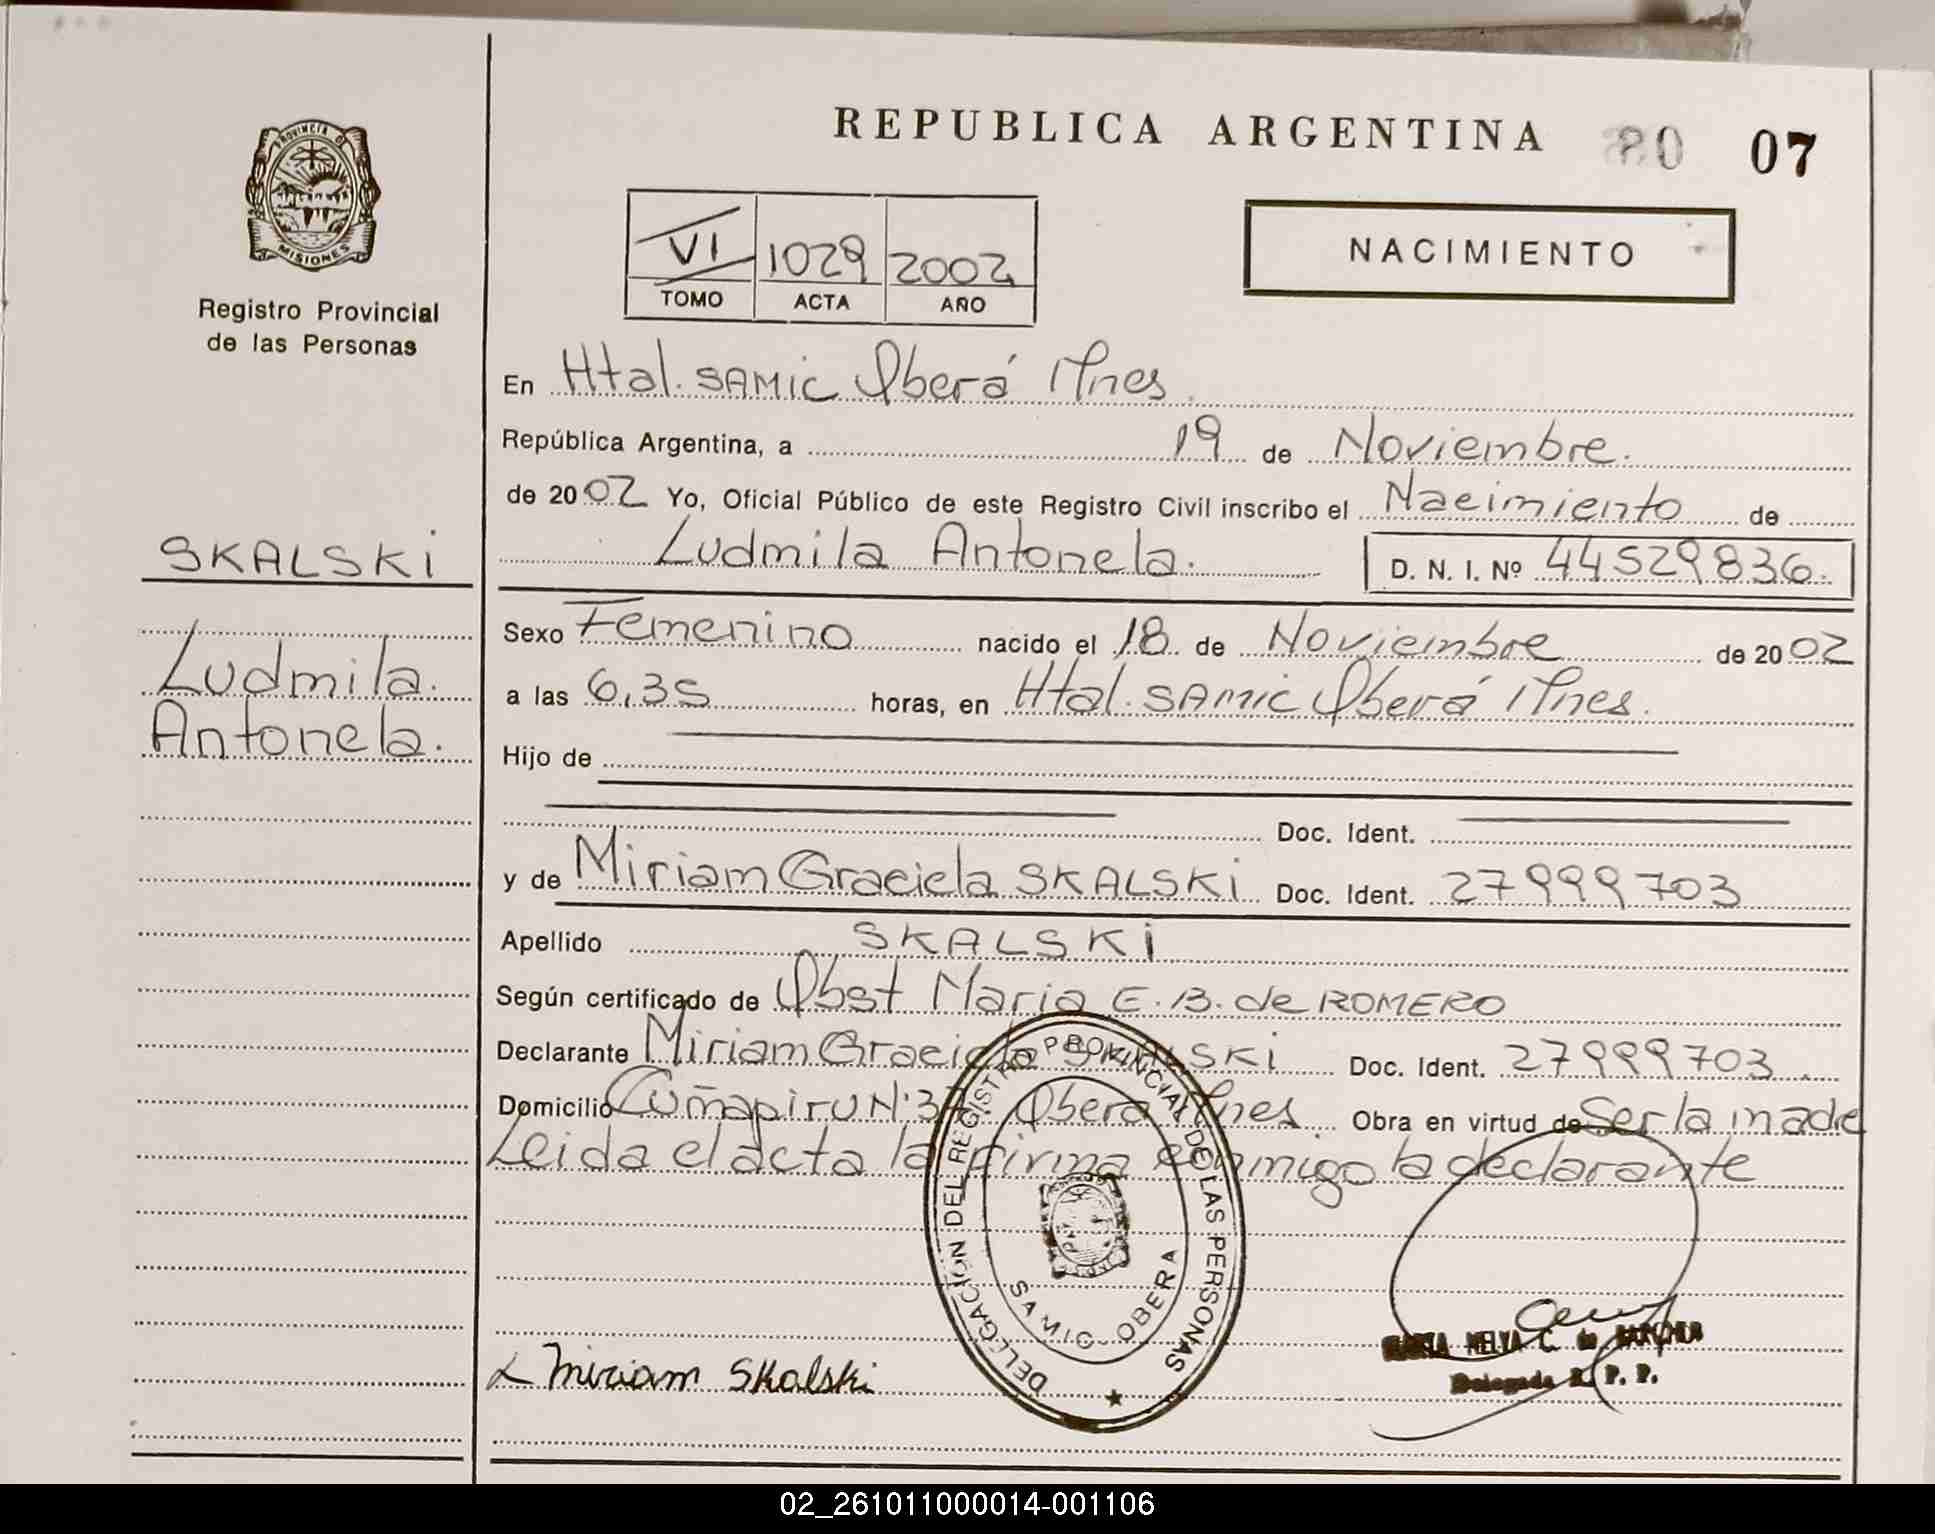 REPUBLICA ARGENTINA 80 07
PROVINCIA DE
MISIONES
Registro Provincial
de las Personas
VI 1029 2002
TOMO ACTA AÑO
NACIMIENTO
En Htal. SAMIC Oberá Mnes.
República Argentina, a 19 de Noviembre.
de 2002 Yo, Oficial Público de este Registro Civil inscribo el Nacimiento de
Ludmila Antonela. D. N. I. Nº 44529836.
SKALSKI
Ludmila.
Antonela.
Sexo Femenino nacido el 18 de Noviembre de 2002
a las 6,35 horas, en Htal. SAMIC Oberá Mnes.
Hijo de
Doc. Ident.
y de Miriam Graciela SKALSKI Doc. Ident. 27999703
Apellido SKALSKI
Según certificado de Obst Maria E. B. de ROMERO
Declarante Miriam Graciela SKALSKI Doc. Ident. 27999703.
Domicilio Cuñapiru Nº Oberá Mnes. Obra en virtud de Ser la madre
Leida el acta la firma conmigo la declarante
DELEGACION DEL REGISTRO PROVINCIAL DE LAS PERSONAS
SAMIC OBERA
Miriam Skalski
MARIA NELVA C. de
Delegada R. P. P.
02_261011000014-001106